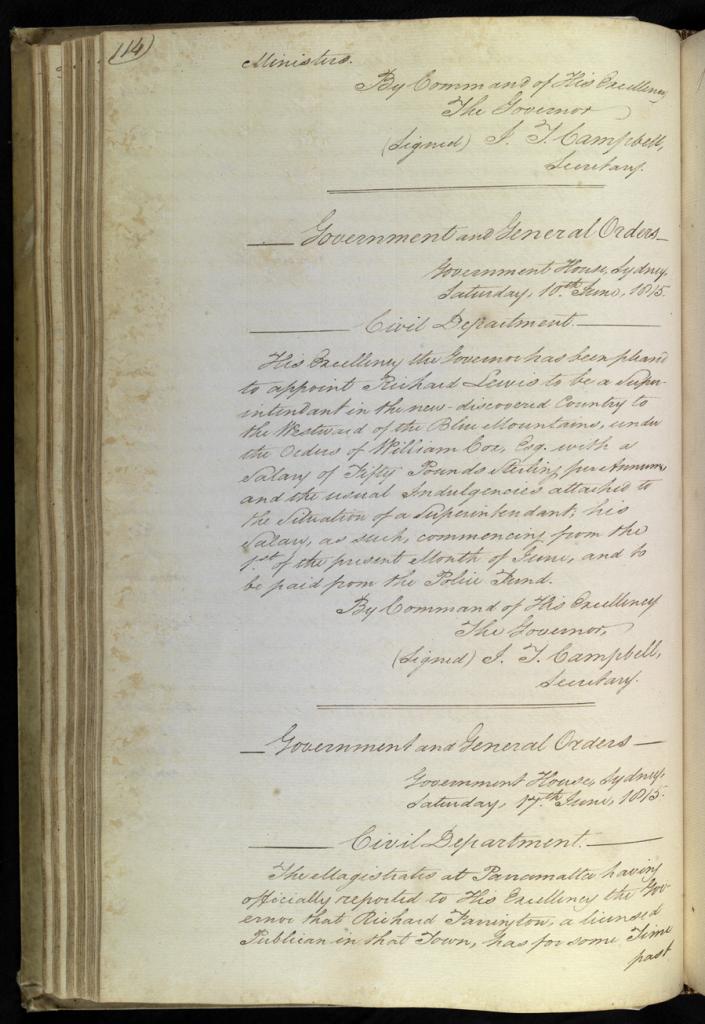 114
Ministers.
By Command of His Excellency
The Governor
(Signed) J. T. Campbell,
Secretary.
Government and General Orders
Government House, Sydney,
Saturday, 10th June, 1815.
Civil Department.
His Excellency the Governor has been pleased
to appoint Richard Lewis to be a Super-
intendant in the new-discovered Country to
the Westward of the Blue Mountains, under
the Orders of William Cox, Esq. with a
Salary of Fifty Pounds Sterling per Annum,
and the usual Indulgencies attached to
the Situation of a Superintendant; his
Salary, as such, commencing from the
1st of the present Month of June, and to
be paid from the Police Fund.
By Command of His Excellency
The Governor,
(Signed) J. T. Campbell,
Secretary.
Government and General Orders
Government House, Sydney,
Saturday, 17th June, 1815.
Civil Department.
The Magistrates at Parramatta having
officially reported to His Excellency the Gov-
ernor that Richard Farrington, a licensed
Publican in that Town, has for some Time
past